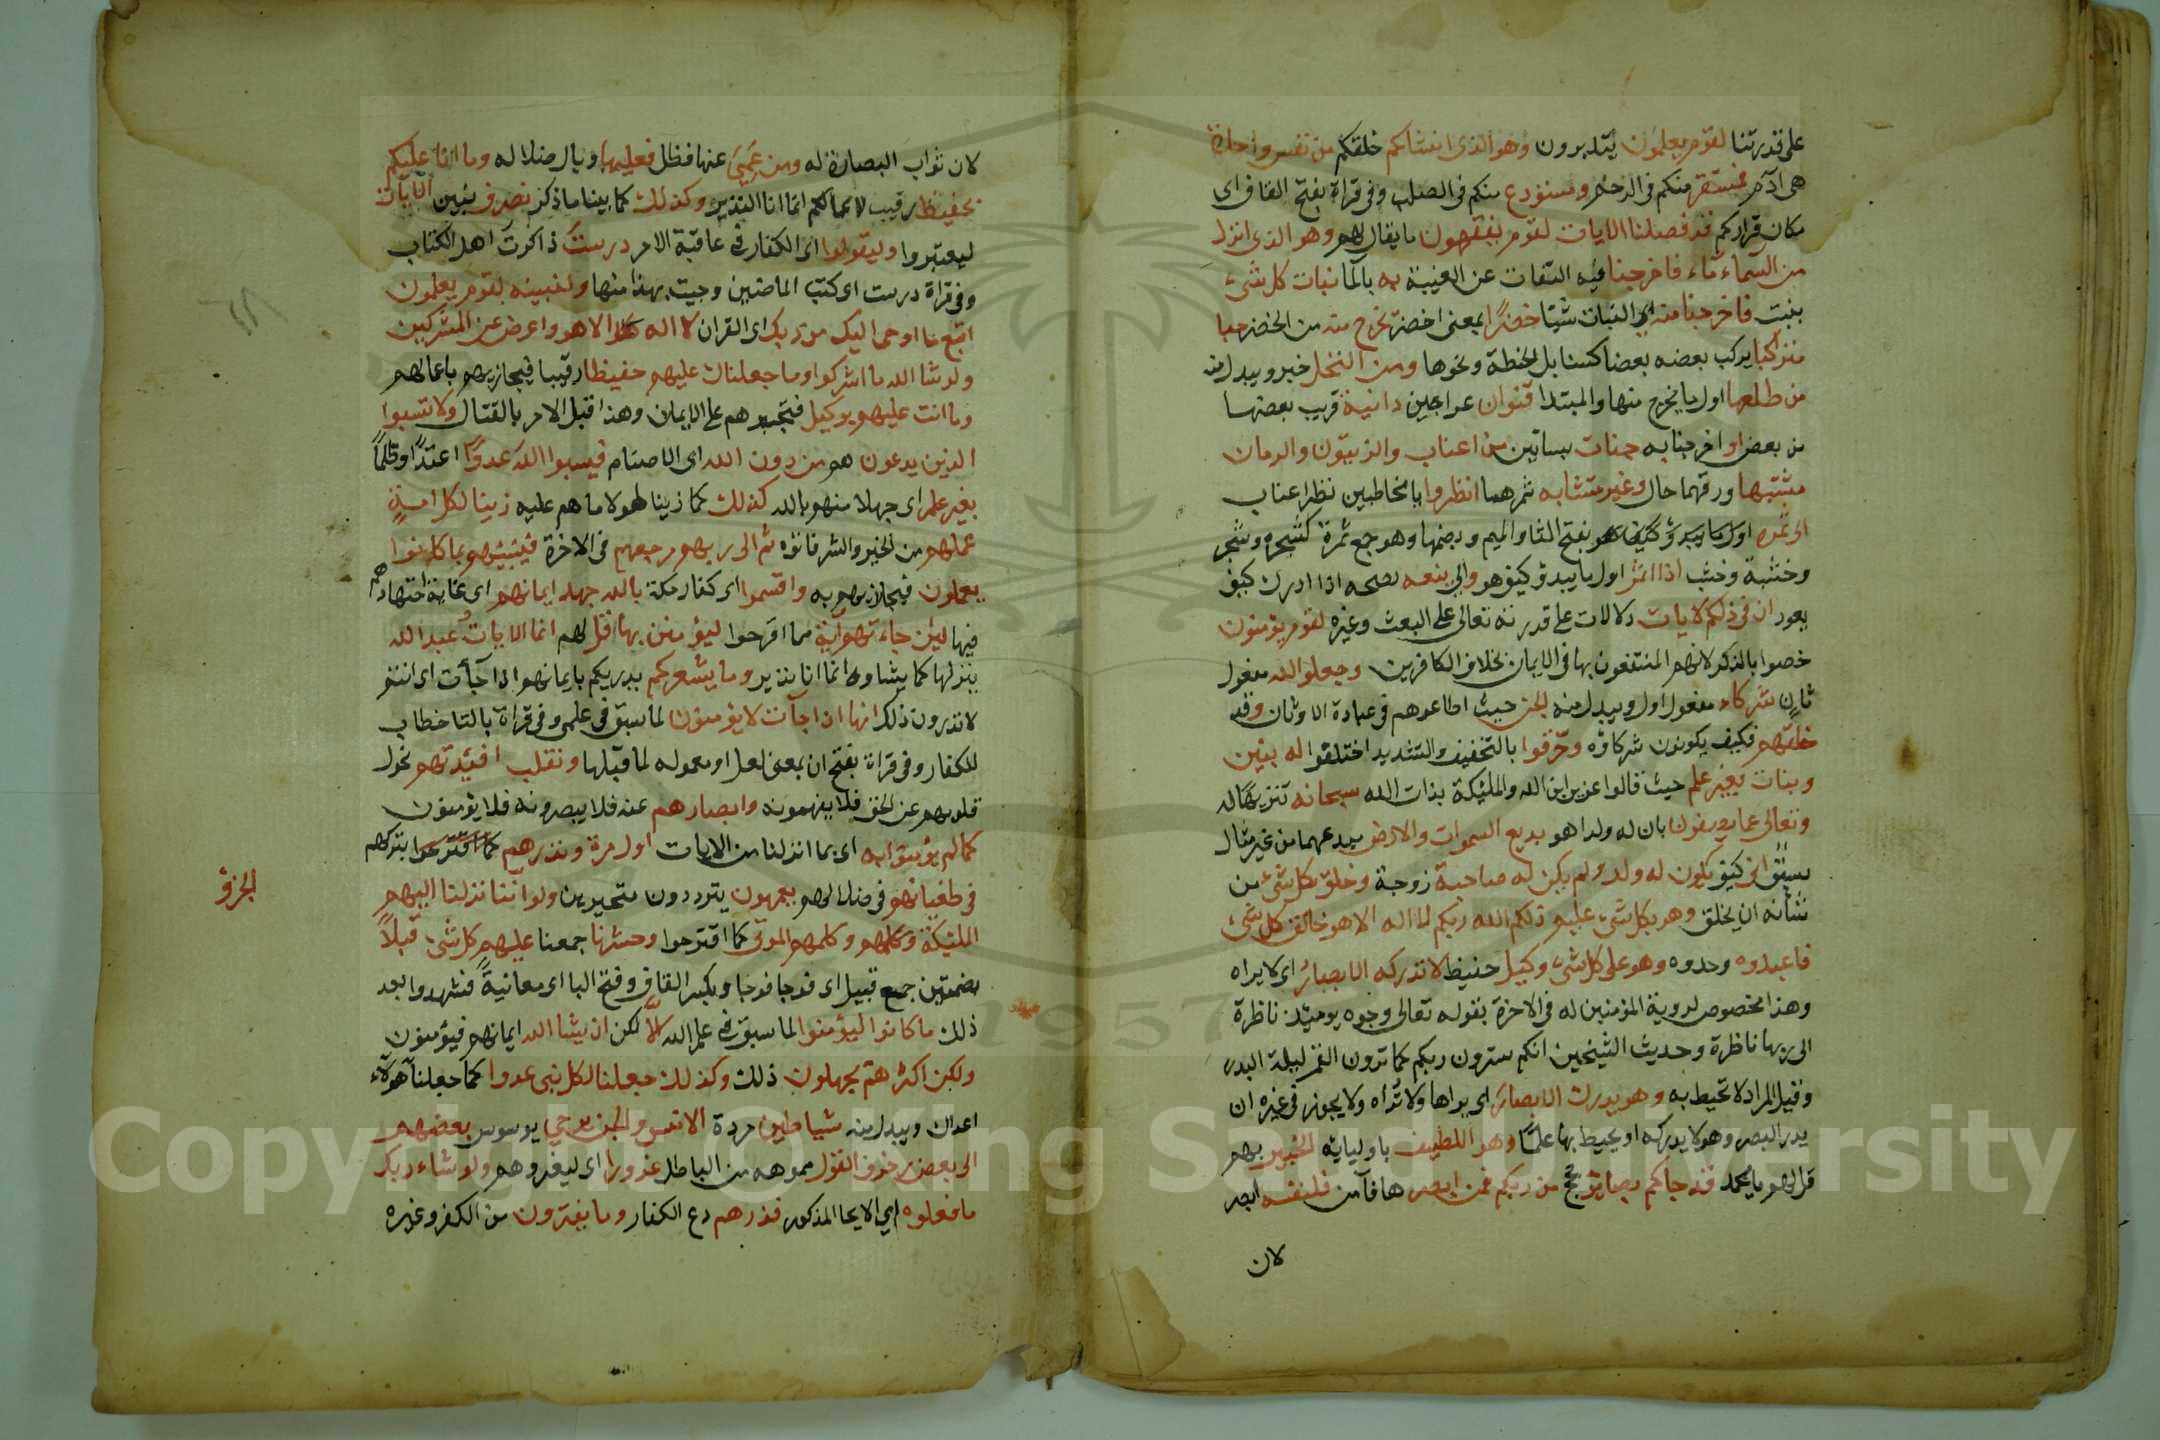 على قدرتنا لقوم يعلمون يتدبرون وهو الذي انشاكم خلقكم من نفس واحدة
هي ادم فمستقر منكم في الرحم ومستودع منكم في الصلب وفي قراة بفتح القاف اي
مكان قراركم قد فصلنا الايات لقوم يفقهون ما يقال لهم وهو الذي انزل
من السماء ماء فاخرجنا فيه التفات عن الغيبة به بالما نبات كل شيء
ينبت فاخرجنا منه اي النبات شيا خضرا بمعنى اخضر نخرج منه من الخضر حبا
متراكبا يركب بعضه بعضا كسنابل الحنطة ونحوها ومن النخل خبر ويبدل منه
من طلعها اول ما يخرج منها والمبتدا قنوان عراجين دانية قريب بعضها
من بعض و اخرجنا به جنات بساتين من اعناب والزيتون والرمان
مشتبها ورقهما حال وغير متشابه ثمرهما انظروا يا مخاطبين نظر اعتبار
الى ثمره بفتح الثا والميم وبضمها وهو جمع ثمرة كشجرة وشجر
وخشبة وخشب اذا اثمر اول ما يبدو كيف هو والى ينعه نضجه اذا ادرك كيف
يعود ان في ذلكم لايات دلالات على قدرته تعالى على البعث وغيره لقوم يؤمنون
خصوا بالذكر لانهم المنتفعون بها في الايمان بخلاف الكافرين وجعلوا لله مفعول
ثان شركاء مفعول اول ويبدل منه الجن حيث اطاعوهم في عبادة الاوثان وقد
خلقهم فكيف يكونون شركاؤه وخرقوا بالتخفيف والتشديد اختلقوا له بنين
وبنات بغير علم حيث قالوا عزير ابن الله والمليكة بنات الله سبحانه تنزيها له
وتعالى عما يصفون بان له ولدا هو بديع السموات والارض مبدعهما من غير مثال
سبق انى كيف يكون له ولد ولم يكن له صاحبة زوجة وخلق كل شيء من
شانه ان يخلق وهو بكل شيء عليم ذلكم الله ربكم لا اله الا هو خالق كل شيء
فاعبدوه وحدوه وهو على كل شيء وكيل حفيظ لا تدركه الابصار اي لا يراه
وهذا مخصوص لروية المؤمنين له في الاخرة بقوله تعالى وجوه يومئذ ناظرة
الى ربها ناظرة وحديث الشيخين انكم سترون ربكم كما ترون القمر ليلة البدر
وقيل المراد لا تحيط به وهو يدرك الابصار اي يراها ولا تراه ولا يجوز في غيره ان
يدرك البصر وهو لا يدركه او يحيط بها علما وهو اللطيف باوليايه الخبير بهم
قل لهم يا محمد قد جاكم بصائر حجج من ربكم فمن ابصر ها فآمن فلنفسه ابصر
لان
لان ثواب البصارة له ومن عمي عنها فضل فعليها وبال ضلاله وما انا عليكم
بحفيظ رقيب لاعمالكم انما انا النذير وكذلك كما بينا ما ذكر نصرف نبين الايات
ليعتبروا وليقولوا اي الكفار في عاقبة الامر درست ذاكرت اهل الكتاب
وفي قراة درست اي كتب الماضين وجيت بهذا منها ولنبينه لقوم يعلمون
اتبع ما اوحى اليك من ربك اي القران لا اله الا هو واعرض عن المشركين
ولو شا الله ما اشركوا وما جعلناك عليهم حفيظا رقيبا فيجازيهم باعمالهم
وما انت عليهم بوكيل فتجبرهم على الايمان وهذا قبل الامر بالقتال ولا تسبوا
الذين يدعون هم من دون الله اي الاصنام فيسبوا الله عدوا اعتدا وظلما
بغير علم اي جهلا منهم بالله كذلك كما زينا لهولا ما هم عليه زينا لكل امة
عملهم من الخير والشر فاتوه ثم الى ربهم مرجعهم في الاخرة فينبئهم بما كانوا
يعملون فيجازيهم به واقسموا اي كفار مكة بالله جهد ايمانهم اي غاية اجتهادهم
فيها لئن جاءتهم آية مما اقترحوا ليؤمنن بها قل لهم انما الايات عند الله
ينزلها كما يشا وانما انا نذير وما يشعركم يدريكم بايمانهم اذا جآت اي انتم
لا تدرون ذلك انها اذا جآت لا يؤمنون لما سبق في علمي وفي قراة بالتا خطاب
للكفار وفي قراة بفتح ان بمعنى لعل او معموله لما قبلها ونقلب افئدتهم نحول
قلوبهم عن الحق فلا يفهمونه وابصارهم عنه فلا يبصرونه فلا يؤمنون
كما لم يؤمنوا به اي بما انزلنا من الايات اول مرة ونذرهم كما اقترحوا بتركهم
في طغيانهم في ضلالهم يعمهون يترددون متحيرين ولو اننا نزلنا اليهم
الجزؤ
المليكة وكلمهم وكلمهم الموتى كما اقترحوا وحشرنا جمعنا عليهم كل شيء قبلا
بضمتين جمع قبيل اي فوجا فوجا وبكسر القاف وفتح البا اي معاينة فشهدوا بعد
ذلك ما كانوا ليؤمنوا لما سبق في علم الله الا لكن ان يشا الله ايمانهم فيؤمنون
ولكن اكثرهم يجهلون ذلك وكذلك جعلنا لكل نبي عدوا كما جعلنا هؤلاء
اعداك ويبدل منه شياطين مردة الانس والجن يوحي يوسوس بعضهم
الى بعض زخرف القول مموهه من الباطل غرورا اي ليغروهم ولو شاء ربك
ما فعلوه اي الايحا المذكور فذرهم دع الكفار وما يفترون من الكفر وغيره
1957
Copyright © King Saud University